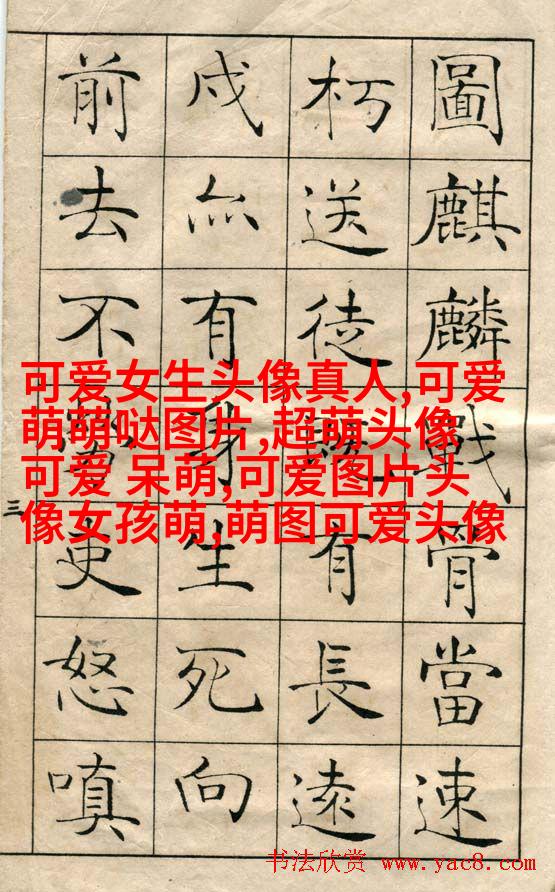 圖麒麟戰骨當速
朽送徒有長遠
戍亦有身生死向
前去不吏怒嗔
三
可爱女生头像真人,可爱
萌萌哒图片,超萌头像
可爱 呆萌,可爱图片头
像女孩萌,萌图可爱头像
书法欣赏 www.yac8.com